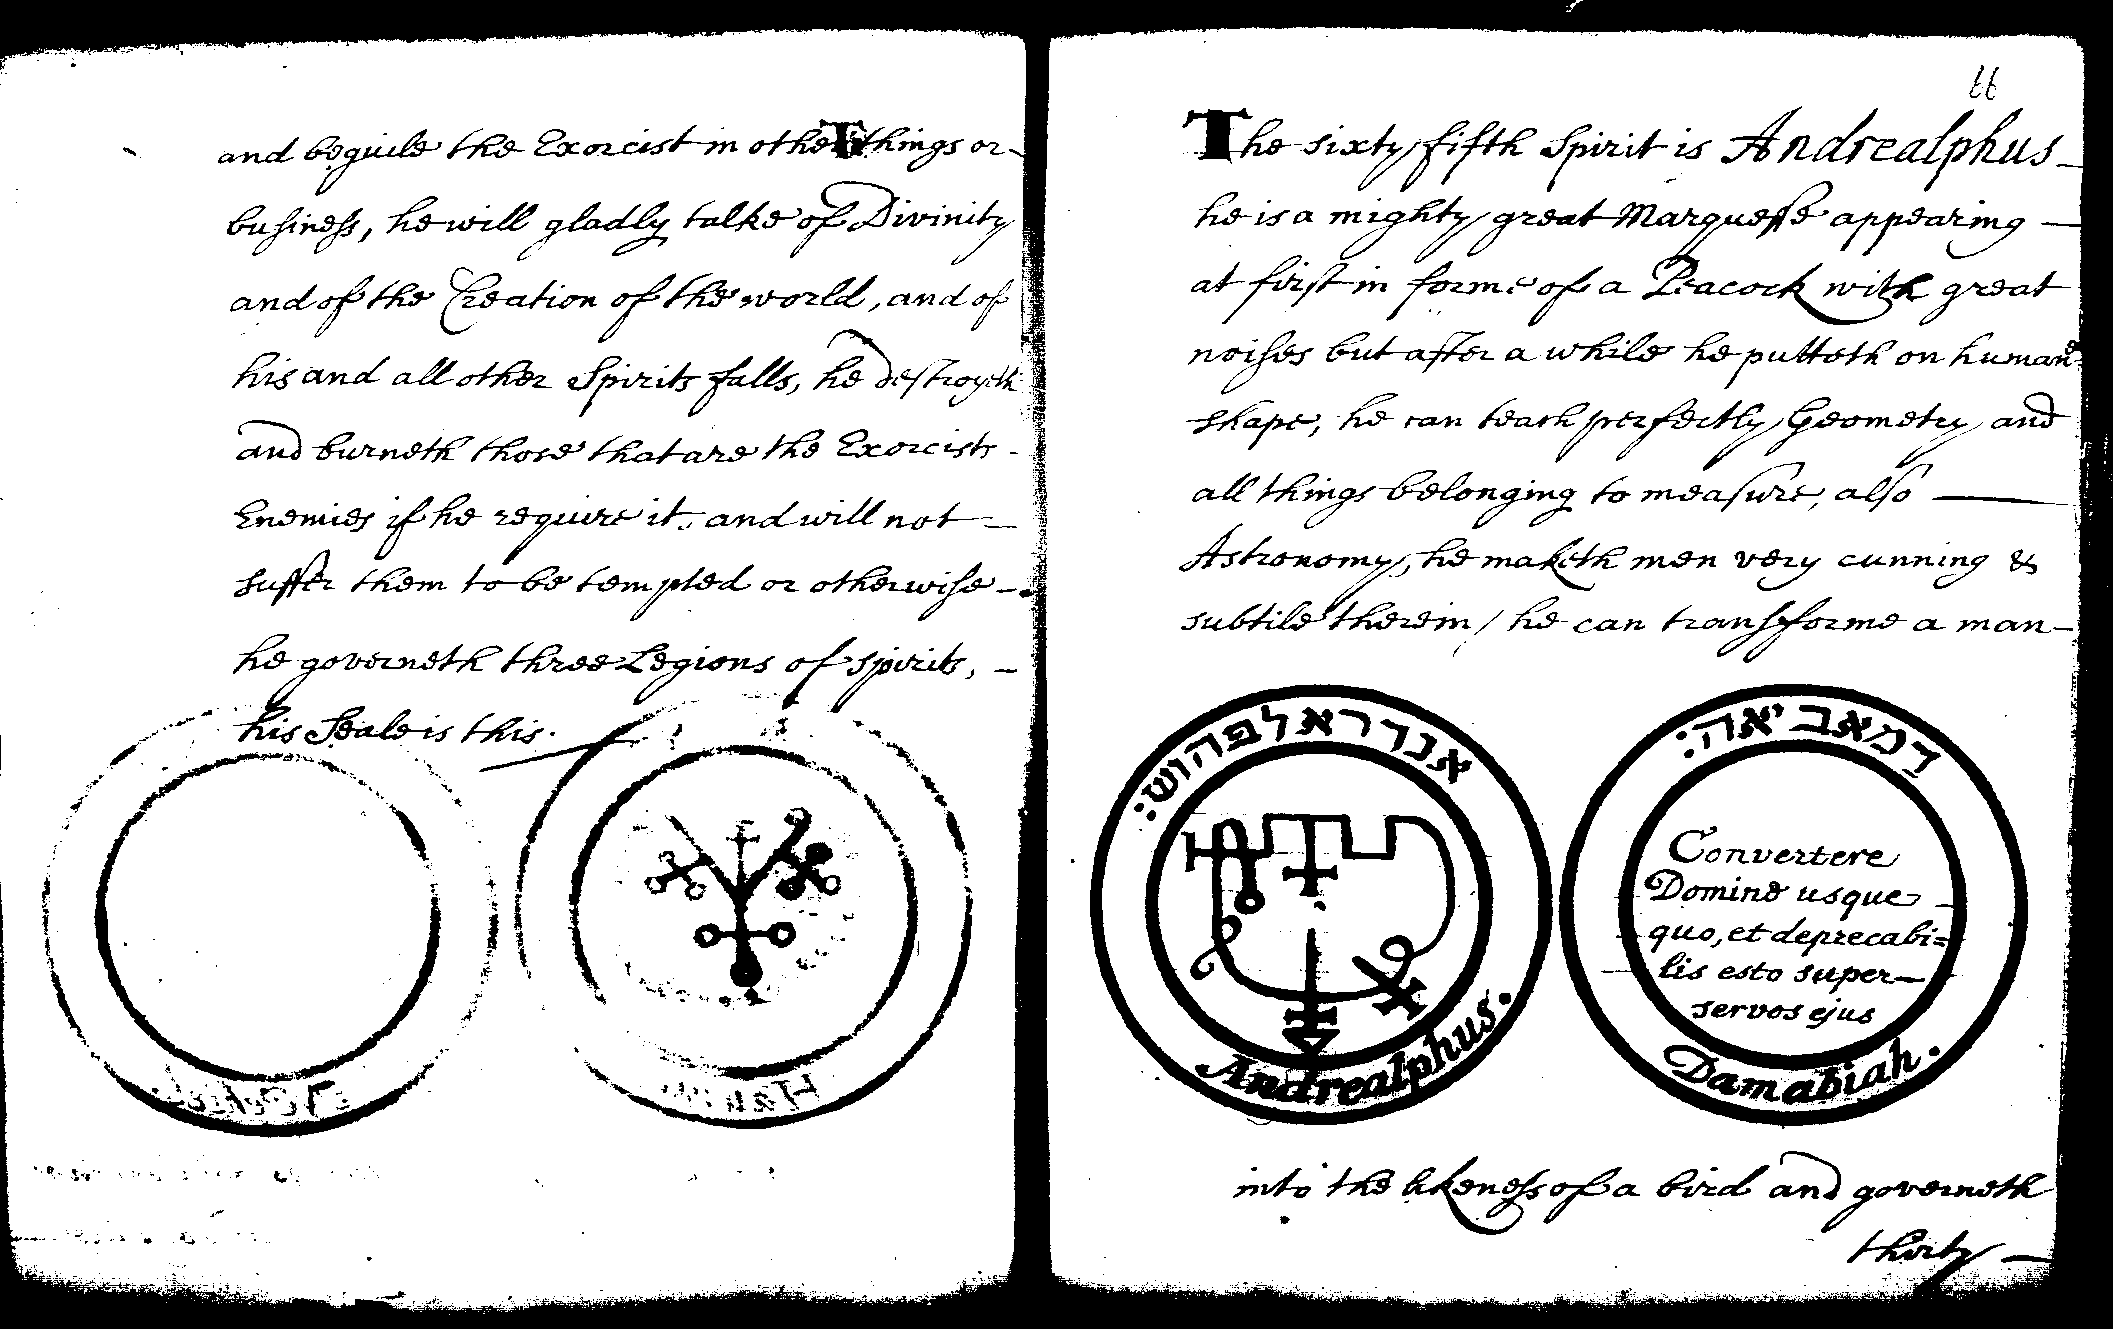 and beguile the Exorcist in other things or-
business, he will gladly talke of Divinity
and of the Creation of the world, and of
his and all other Spirits falls, he destroyeth
and burneth those that are the Exorcists -
Enemies if he require it, and will not -
suffer them to be tempted or otherwise -
he governeth three Legions of spirits, -
his Seale is this.
66
The sixty fifth Spirit is Andrealphus -
he is a mighty great Marquesse appearing -
at first in forme of a Peacock with great
noises but after a while he putteth on humane
shape, he can teach perfectly Geometry and
all things belonging to measure, also -
Astronomy, he maketh men very cunning &
subtile therein / he can transforme a man -
אנדראלפהוש:
Andrealphus.
דמאביאה:
Convertere
Domine usque -
quo, et deprecabi=
lis esto super -
servos ejus
Damabiah.
into the likeness of a bird and governeth
thirty -